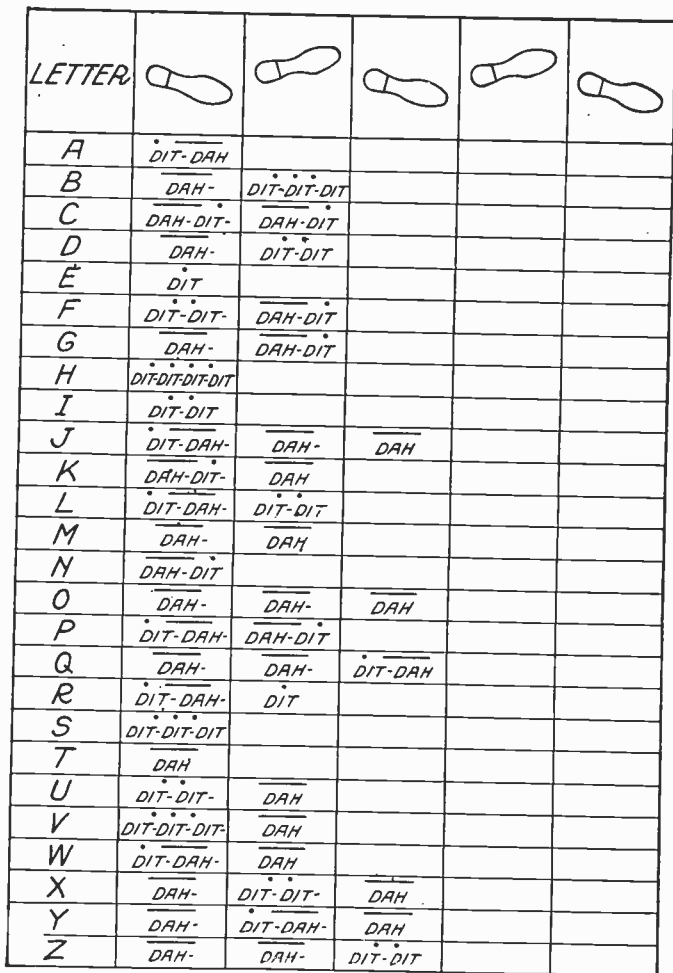 LETTER
A DIT-DAH
B DAH- DIT-DIT-DIT
C DAH-DIT- DAH-DIT
D DAH- DIT-DIT
E DIT
F DIT-DIT- DAH-DIT
G DAH- DAH-DIT
H DIT-DIT-DIT-DIT
I DIT-DIT
J DIT-DAH- DAH- DAH
K DAH-DIT- DAH
L DIT-DAH- DIT-DIT
M DAH- DAH
N DAH-DIT
O DAH- DAH- DAH
P DIT-DAH- DAH-DIT
Q DAH- DAH- DIT-DAH
R DIT-DAH- DIT
S DIT-DIT-DIT
T DAH
U DIT-DIT- DAH
V DIT-DIT-DIT- DAH
W DIT-DAH- DAH
X DAH- DIT-DIT- DAH
Y DAH- DIT-DAH- DAH
Z DAH- DAH- DIT-DIT